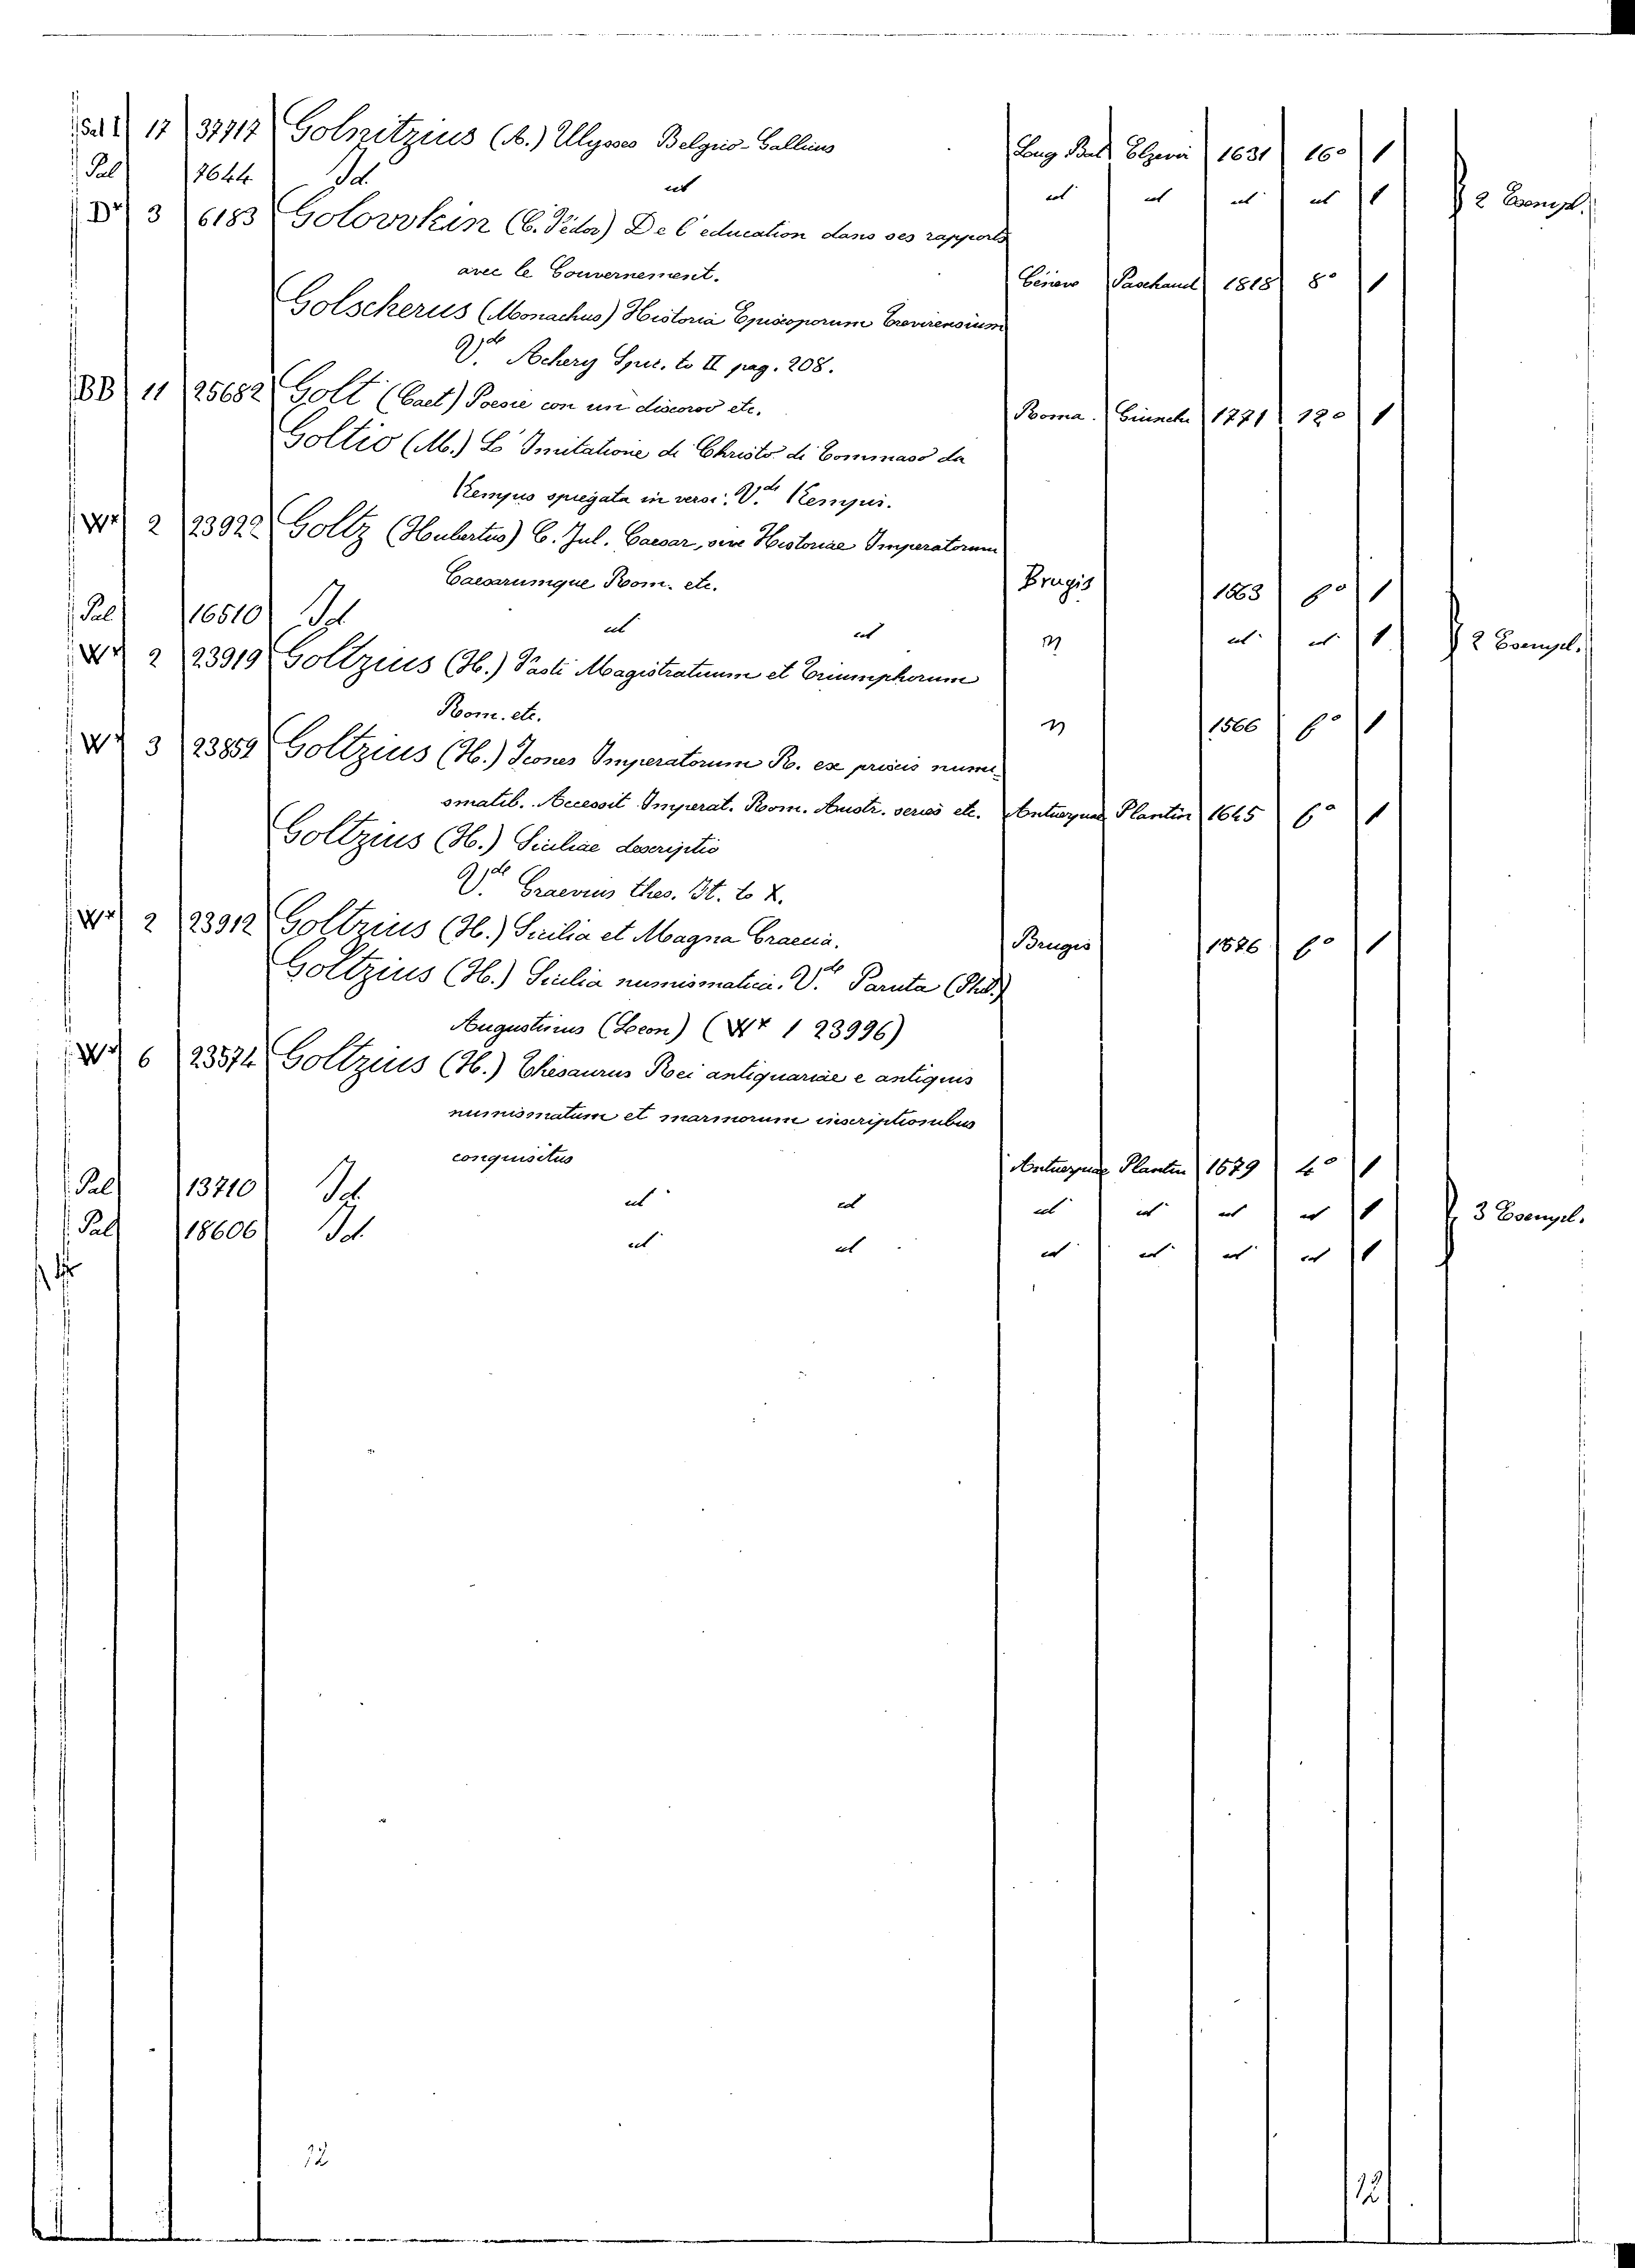 Sal I 17 37717 Golnitzius (A.) Ulysses Belgico-Gallicus Lug Bat Elzevir 1631 16º 1
Pal 7644 Id. ut ut ut ut ut 1 2 Esempl.
D* 3 6183 Golovvkin (C. Fédor) De l'education dans ses rapports
avec le Gouvernement. Géneve Paschaud 1818 8º 1
Golscherus (Monachus) Historia Episcoporum Trevirensium
V.de Achery Spic. to II pag. 208.
BB 11 25682 Golt (Caet) Poesie con un discorso etc. Roma. 1771 12º 1
Goltio (M.) L'Imitatione di Christo di Tommaso da
Kempis spiegata in versi. V.de Kempis.
W* 2 23922 Goltz (Hubertus) C. Jul. Caesar, sive Historiae Imperatorum
Caesarumque Rom. etc. Brugis 1563 fº 1
Pal 16510 Id ut ut " ut ut 1 2 Esempl.
W* 2 23919 Goltzius (H.) Fasti Magistratuum et Triumphorum
Rom. etc. " 1566 fº 1
W* 3 23859 Goltzius (H.) Icones Imperatorum R. ex priscis numi-
smatib. Accessit Imperat. Rom. Austr. series etc. Antuerpiae Plantin 1645 fº 1
Goltzius (H.) Siciliae descriptio
V.de Graevius thes. It. to X.
W* 2 23912 Goltzius (H.) Sicilia et Magna Graecia. Bruges 1576 fº 1
Goltzius (H.) Sicilia numismatica. V.de Paruta (Phil.)
Augustinus (Leon) (W* 1 23996)
W* 6 23574 Goltzius (H.) Thesaurus Rei antiquariae e antiquis
numismatum et marmorum inscriptionibus
conquisitus Antuerpiae Plantin 1579 4º 1
Pal 13710 Id. ut ut ut ut ut ut 1 3 Esempl.
Pal 18606 Id. ut ut ut ut ut ut 1
12
12